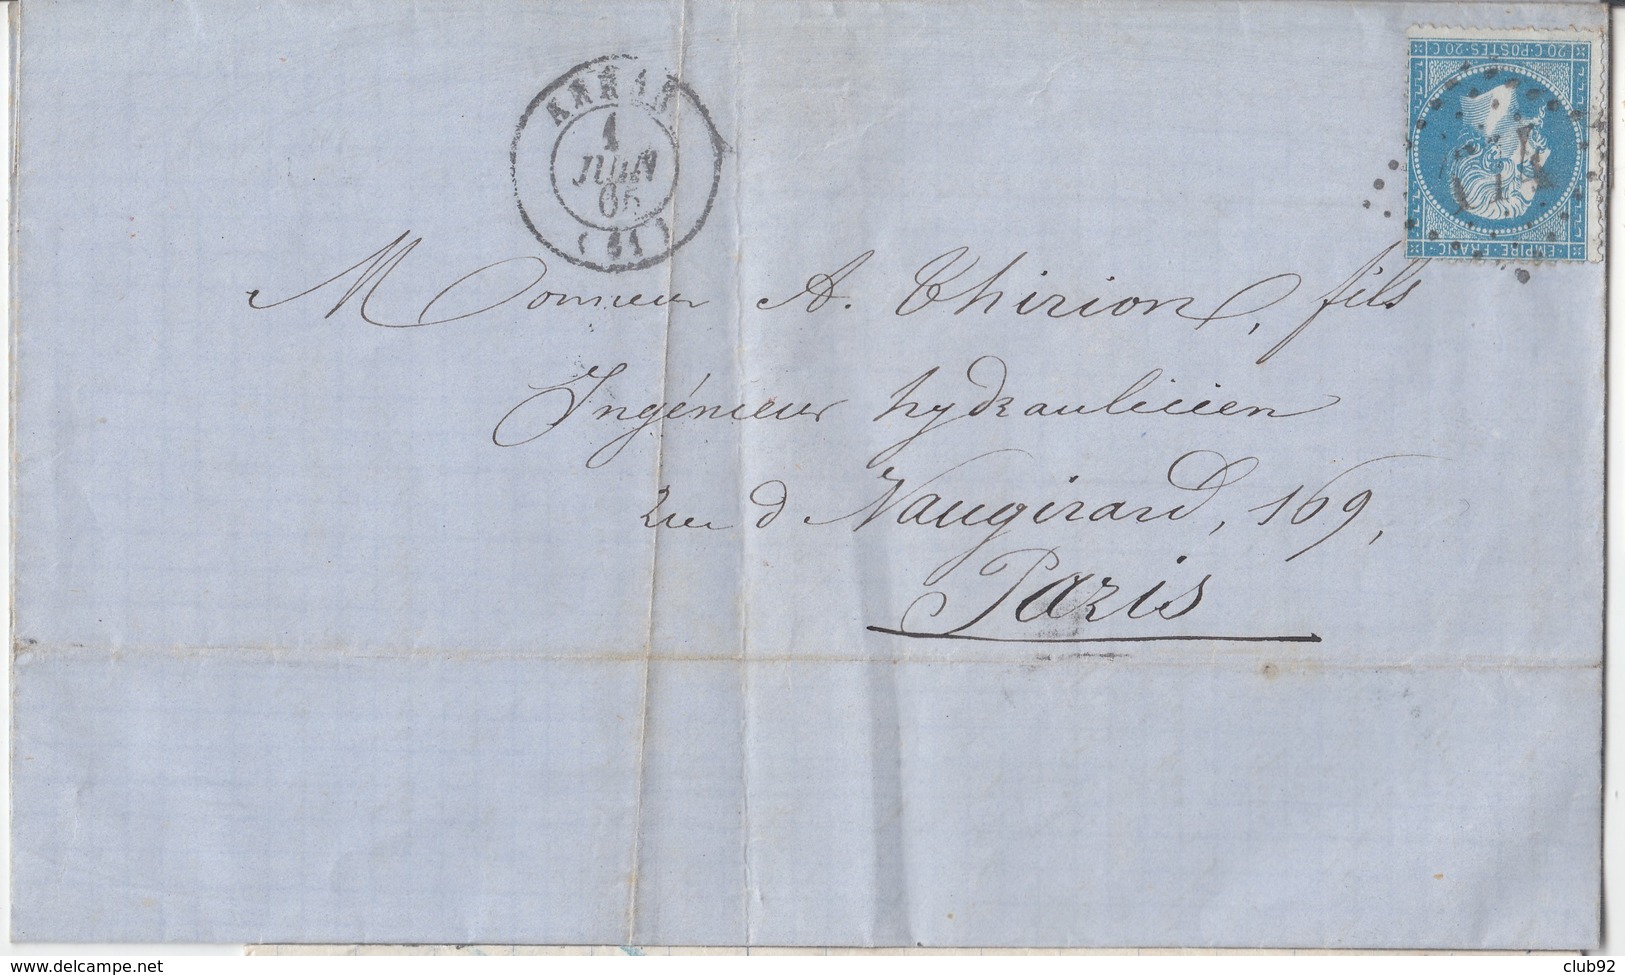 ARRAS
1
JUIN
65
(61)
20 C·POSTES·20 C
EMPIRE·FRANC
Monsieur A. Thirion, fils
Ingénieur hydraulicien
rue d Vaugirard, 169,
Paris
www.delcampe.net
club92